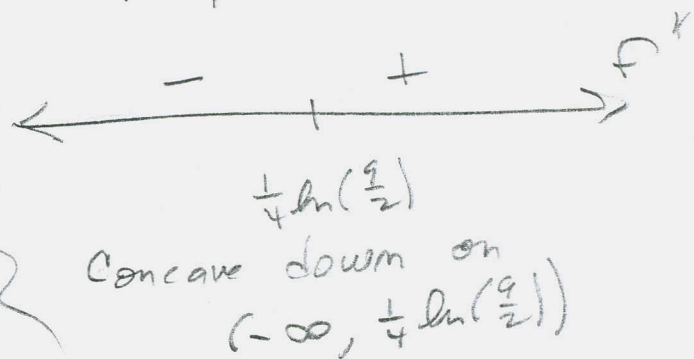 - +
f"
1/4 ln(9/2)
Concave down on
(-∞, 1/4 ln(9/2))